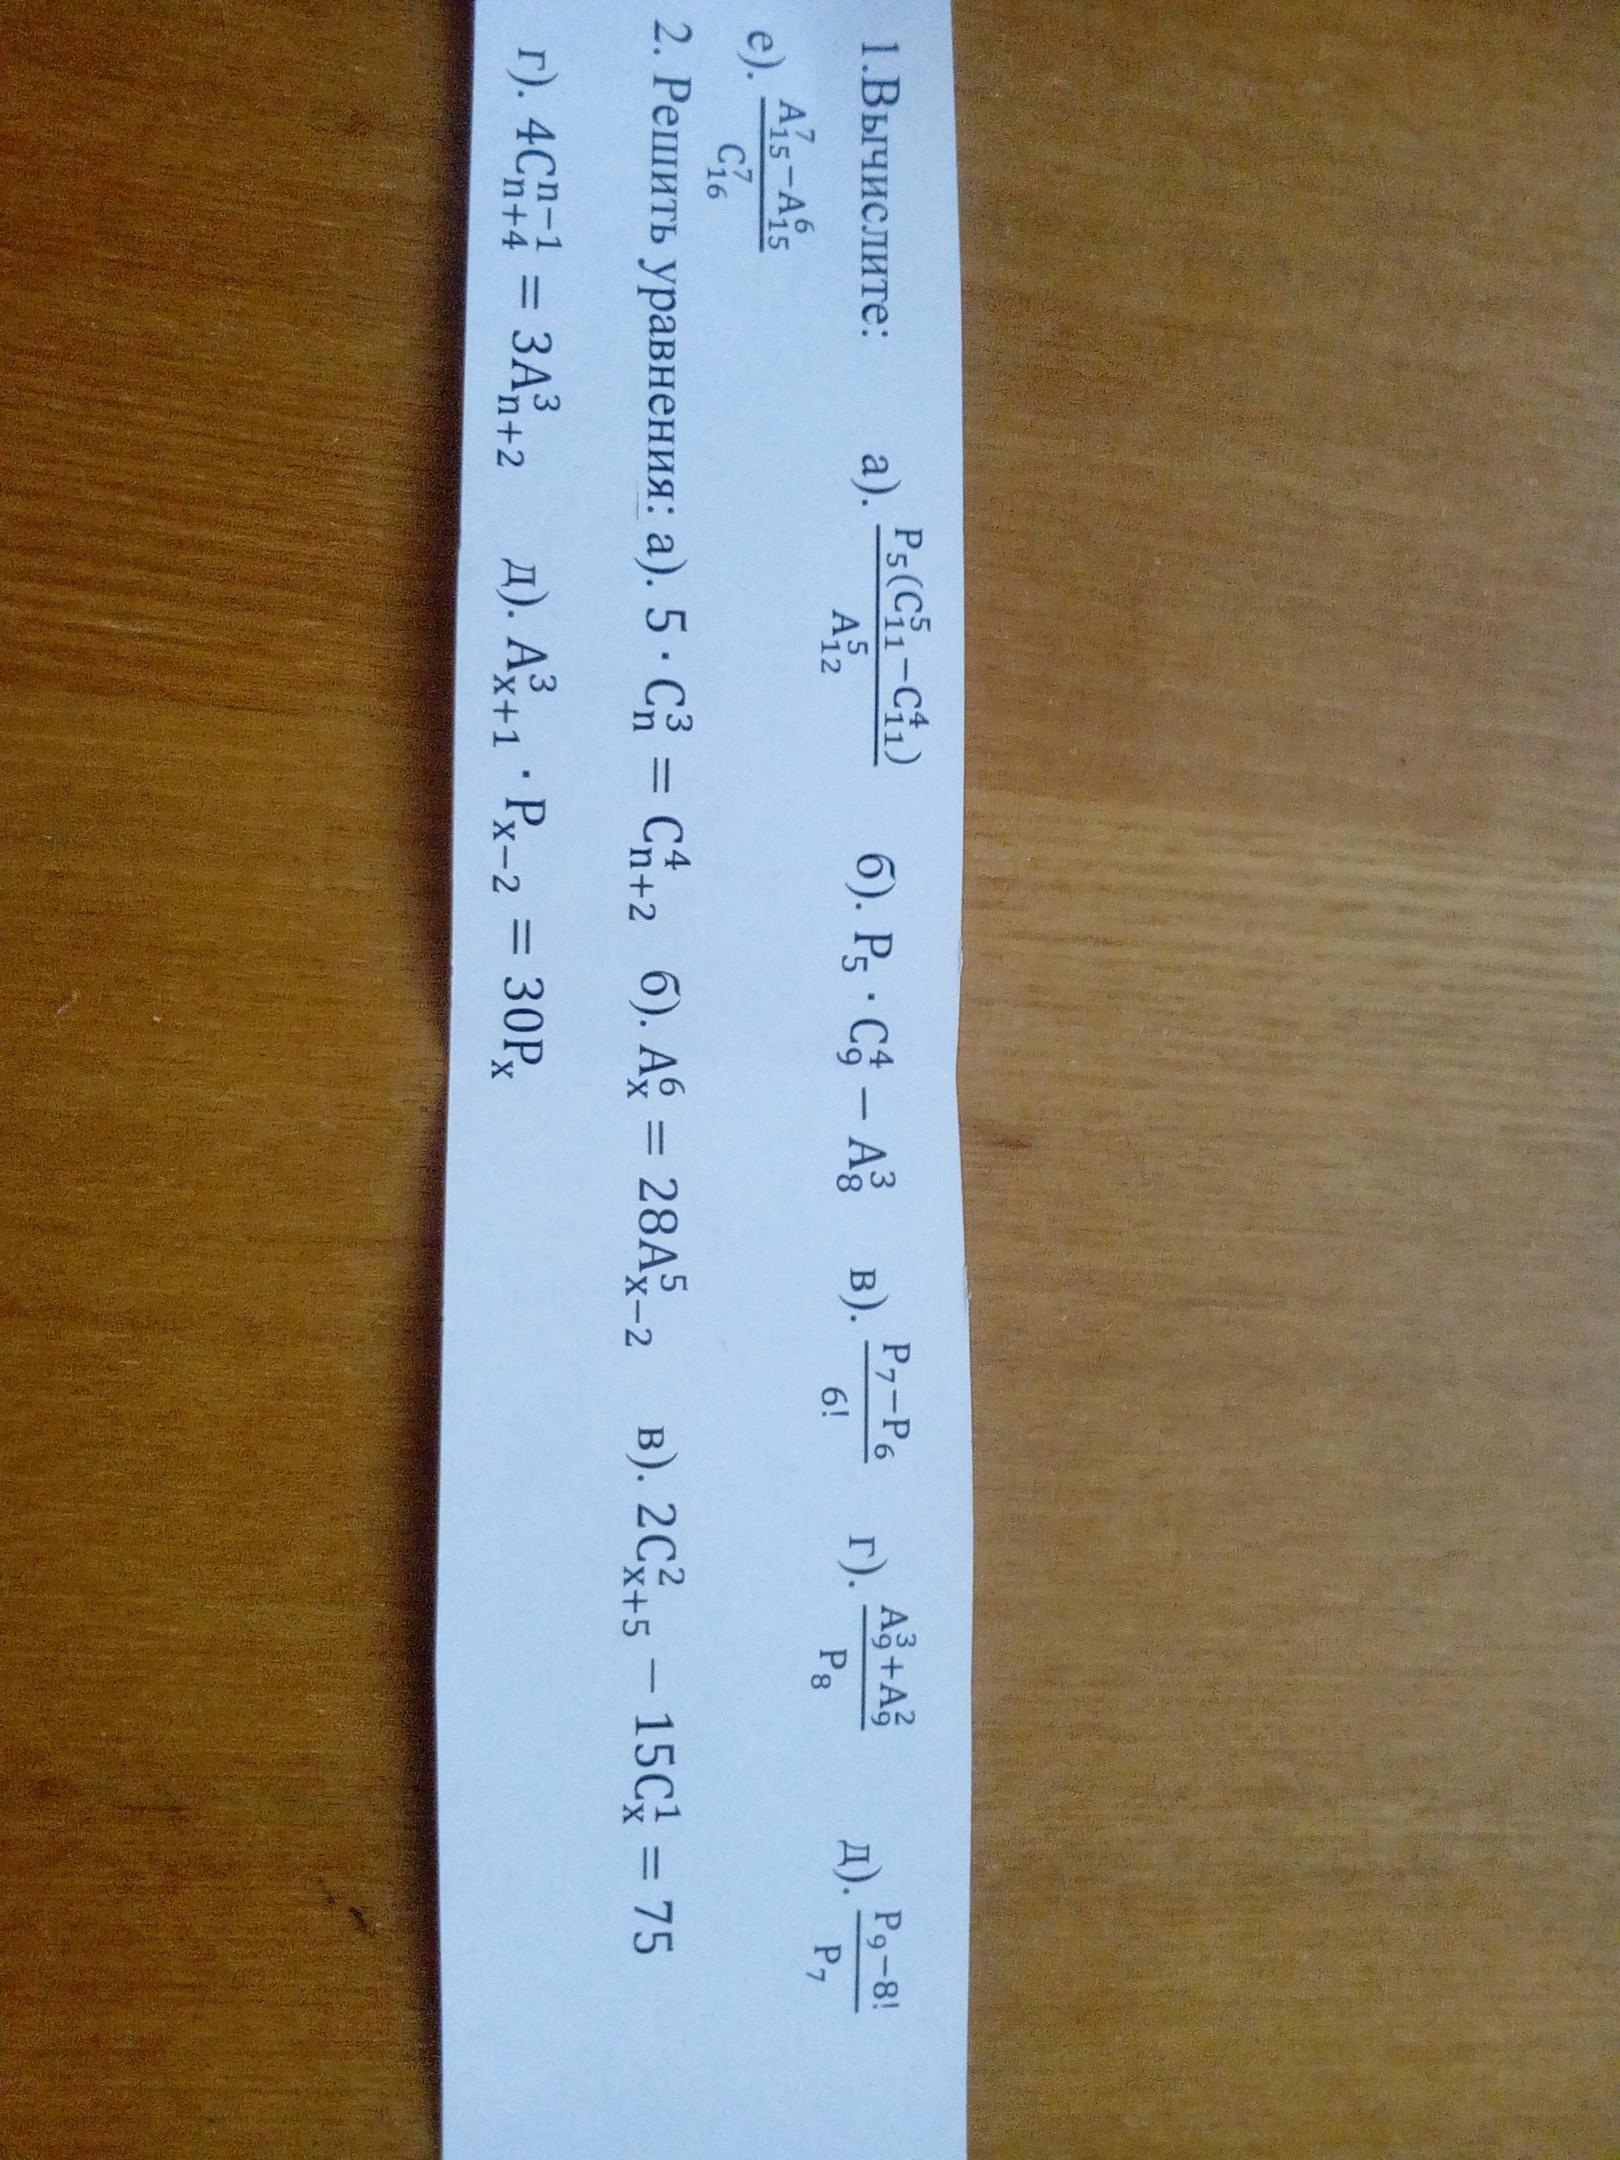 1.Вычислите: а). \frac{P_5(C_{11}^5-C_{11}^4)}{A_{12}^5} б). P_5 · C_9^4 − A_8^3 в). \frac{P_7-P_6}{6!} г). \frac{A_9^3+A_9^2}{P_8} д). \frac{P_9-8!}{P_7}
е). \frac{A_{15}^7-A_{15}^6}{C_{16}^7}
2. Решить уравнения: а). 5 · C_n^3 = C_{n+2}^4 б). A_x^6 = 28A_{x−2}^5 в). 2C_{x+5}^2 − 15C_x^1 = 75
г). 4C_{n+4}^{n−1} = 3A_{n+2}^3 д). A_{x+1}^3 · P_{x−2} = 30P_x